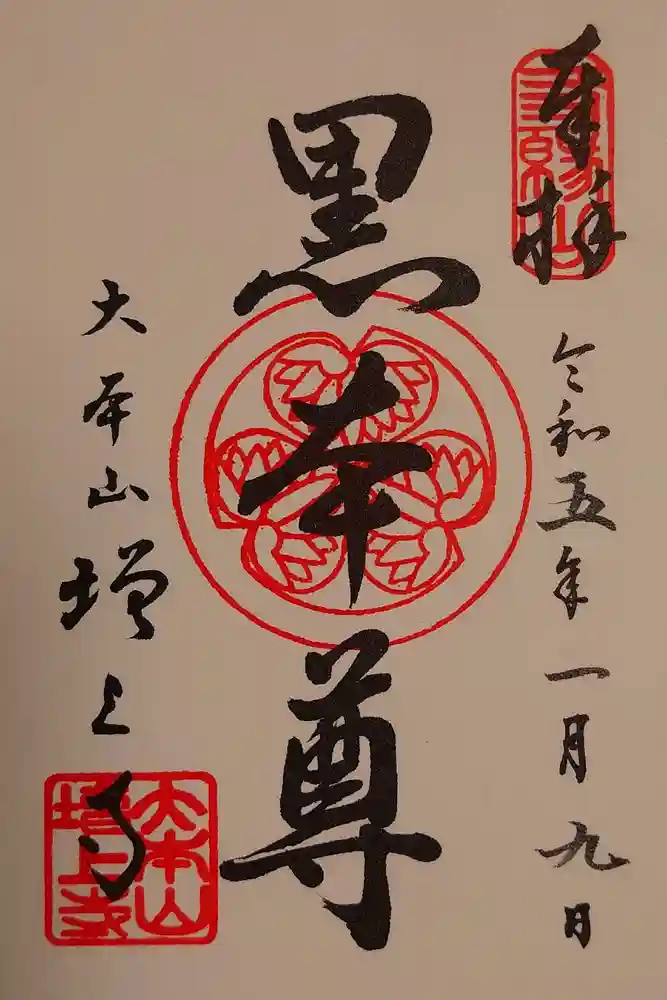 奉拝
三縁山
令和五年一月九日
黒本尊
大本山増上寺
大本山
増上寺